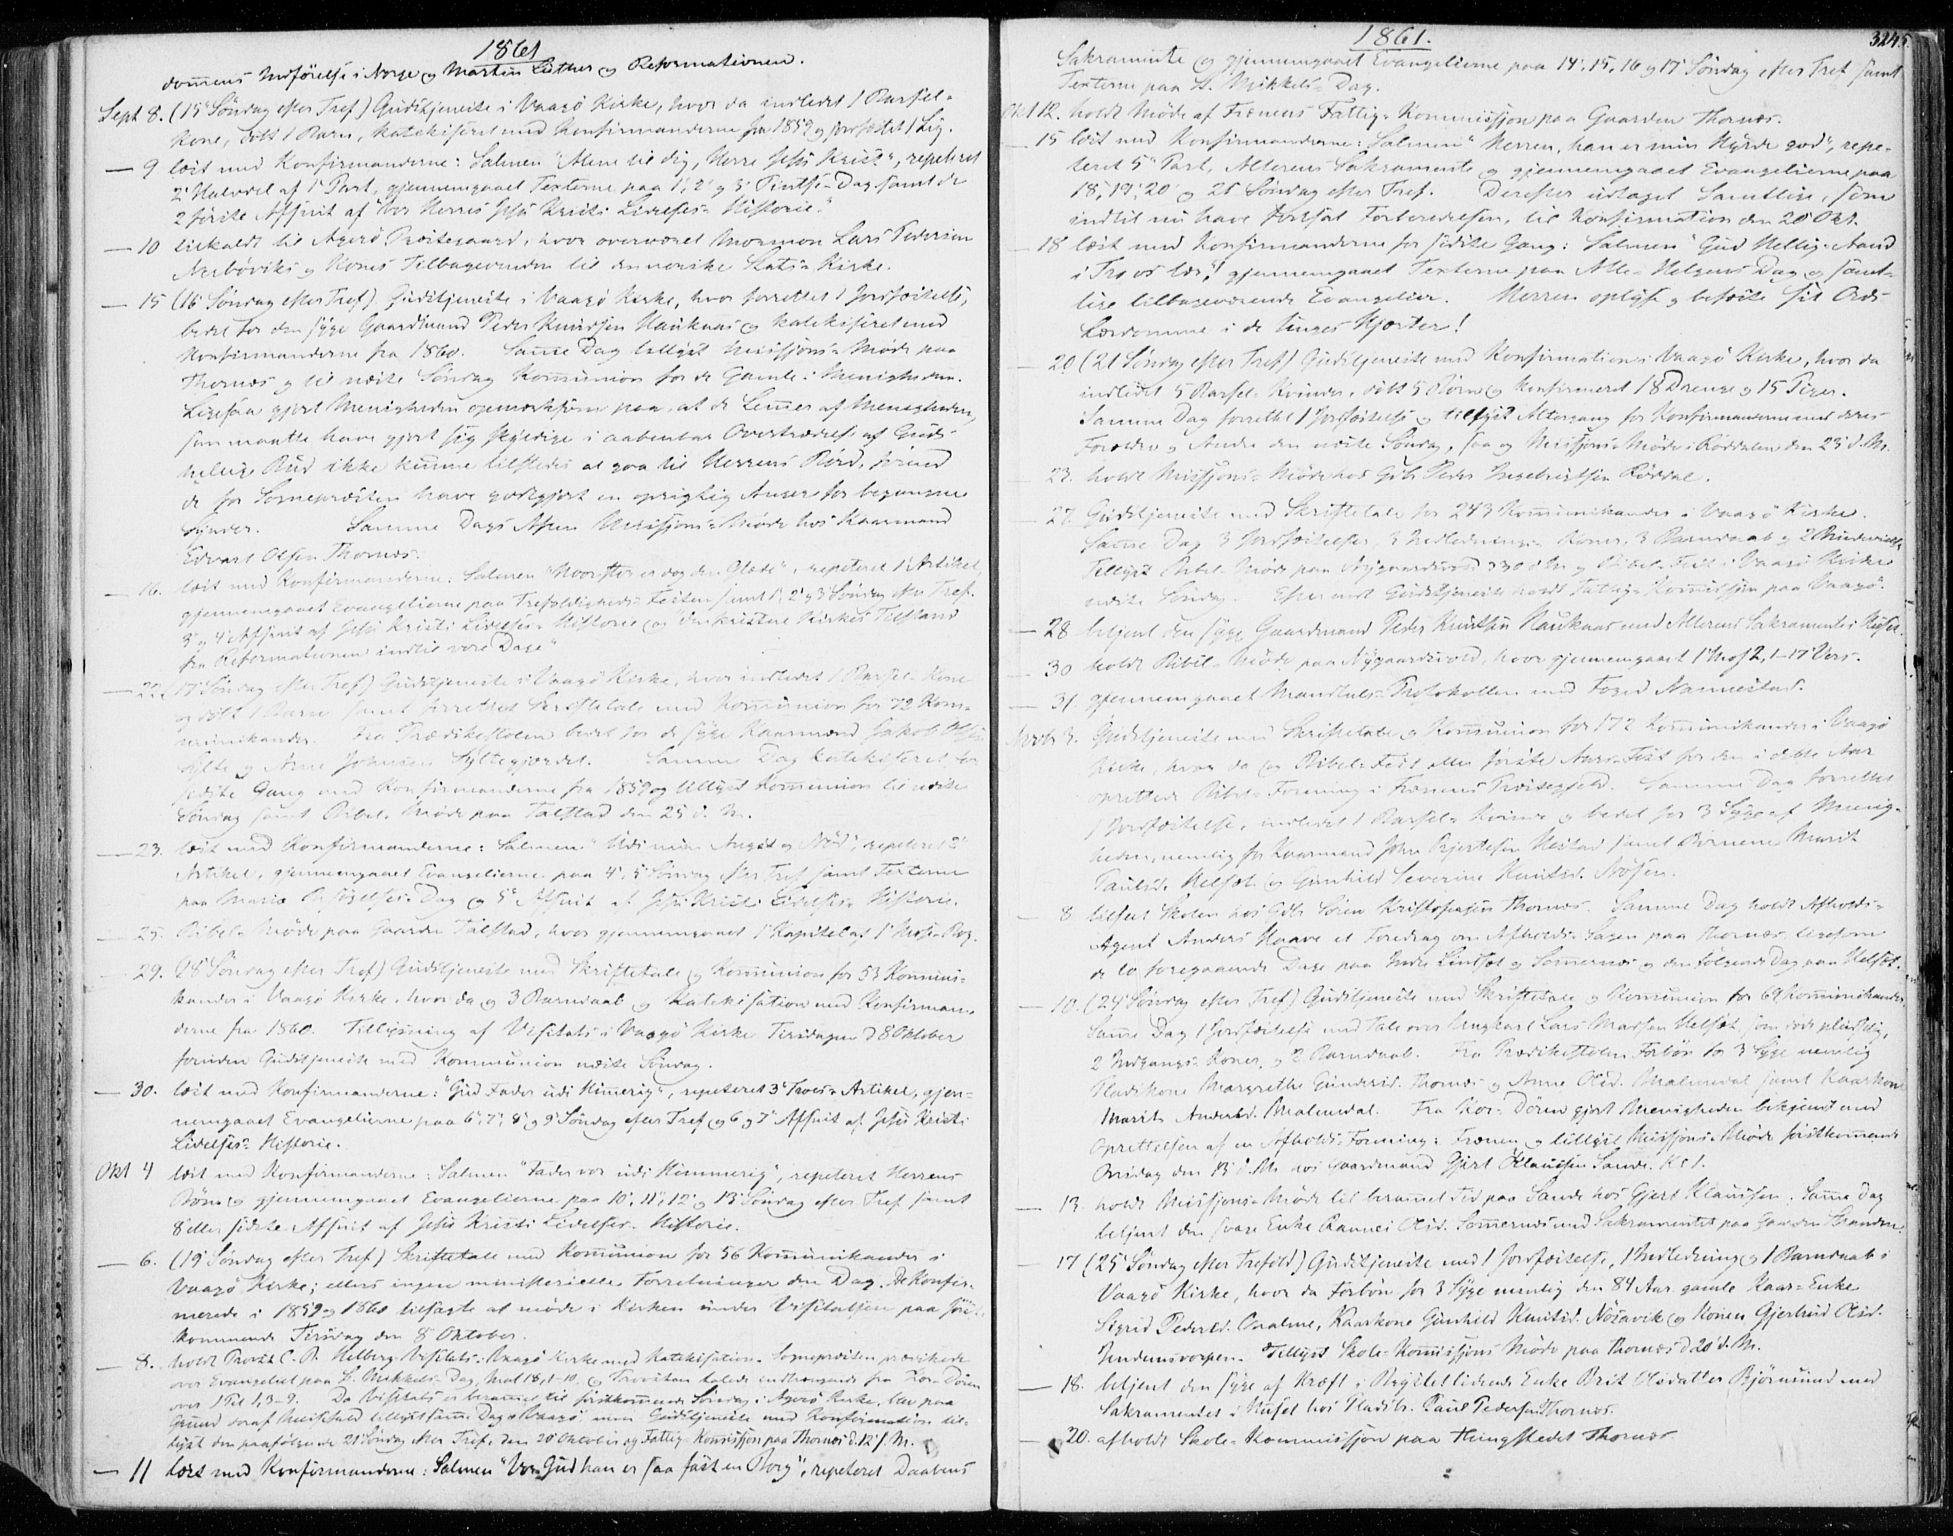 1861
domens Indförelse i Norge og Martin Luther og Reformationen.
Sept 8. (15 Söndag efter Tref) Gudstjeneste i Vaagö Kirke, hvor da indledet 1 Barsel-
Kone, döbt 1 Barn, katekiseret med Konfirmanderne fra 1859 og jordfæstet 1 Lig.
— 9 læst med Konfirmanderne: Salmen "Alene til dig, Herre Jesu Krist", repeteret
2' Halvdel af 1' Part, gjennemgaaet Texterne paa 1', 2' og 3' Pintse-Dag samt de
2 förste Afsnit af "Vor Herres Jesu Kristi Lidelses-Historie."
— 10 tilkaldt til Agerö Præstegaard, hvor overværet Mormon Lars Pedersen
Nerböviks og Kones Tilbagevenden til den norske Stats-Kirke.
— 15 (16' Söndag efter Tref) Gudstjeneste i Vaagö Kirke, hvor forrettet 1 Jordfæstelse,
bedet for den syge Gaardmand Peder Knudsen Haukaas og katekiseret med
Konfirmanderne fra 1860. Samme Dag tillyst Missjons-Möde paa
Thornæs og til næste Söndag Kommunion for de Gamle i Menigheden.
Ligesaa gjort Menigheden opmærksom paa, at de Lemmer af Menigheden,
som maatte have gjort sig skyldige i aabenbar Overtrædelse af Guds
hellige Bud ikke kunne tilstedes at gaa til Herrens Bord, förend
de for Sognepræsten have godtgjort en oprigtig Anger for begangne
Synder. Samme Dags Aften Missjons-Möde hos Kaarmand
Edvart Olsen Thornæs.
— 16. læst med Konfirmanderne: Salmen "Hvor stor er dog den Glæde", repeteret 1' Artikel,
gjennemgaaet Evangelierne paa Trefoldigheds-Festen samt 1', 2' og 3' Söndag efter Tref.
3' og 4' Afsnit af Jesu Kristi Lidelses-Historie og "Den kristne Kirkes Tilstand
fra Reformationen indtil vore Dage"
— 22. (17' Söndag efter Tref) Gudstjeneste i Vaagö Kirke, hvor indledet 1 Barsel-Kone
og döbt 1 Barn samt forrettet Skriftetale med Kommunion for 72 Kom-
munikander. Fra Prædikestolen bedet for de syge Kaarmænd Jakob
Sylte og Arne Johnsen Syltegjærdet. Samme Dag katekiseret for
sidste Gang med Konfirmanderne fra 1859 og tillyst Kommunion til næste
Söndag samt Bibel-Möde paa Talstad den 25 d. M.
— 23. læst med Konfirmanderne: Salmen "Udi min Angst og Nöd", repeteret 2'
Artikel, gjennemgaaet Evangelierne paa 4', 5' Söndag efter Tref samt Texterne
paa Mariæ Besögelses-Dag og 5' Afsnit af Jesu Kristi Lidelses-Historie.
— 25. Bibel-Möde paa Gaarden Talstad, hvor gjennemgaaet 1' Kapitel af 1' Mose-Bog.
— 29. (18' Söndag efter Tref) Gudstjeneste med Skriftetale og Kommunion for 53 Kommuni-
kander i Vaagö Kirke, hvor da og 3 Barndaab og Katekisation med Konfirman-
derne fra 1860. Tillysning af Visitats i Vaagö Kirke Tirsdagen d 8 Oktober
foruden Gudstjeneste med Kommunion næste Söndag.
— 30. læst med Konfirmanderne: "Gud Fader udi Himmerig", repeteret 3' Troes-Artikel, gjen-
nemgaaet Evangelierne paa 6', 7', 8' og 9' Söndag efter Tref og 6' og 7' Afsnit af Jesu Kristi
Lidelses-Historie.
Okt 4 læst med Konfirmanderne: Salmen "Fader vor udi Himmerig", repeteret Herrens
Bön og gjennemgaaet Evangelierne paa 10', 11', 12' og 13' Söndag efter Tref samt
8' eller sidste Afsnit af Jesu Kristi Lidelses-Historie.
— 6. (19' Söndag efter Tref) Skriftetale med Kommunion for 56 Kommunikander i
Vaagö Kirke; ellers ingen ministerielle Forretninger den Dag. De Konfir-
merede i 1859 og 1860 tilsagte at möde i Kirken under Visitatsen paa först-
kommende Tirsdag den 8 Oktober.
— 8. holdt Provst C. P. Helberg Visitats i Vaagö Kirke med Katekisation. Sognepræsten prædikede
over Evangeliet paa St. Mikkels-Dag, Mat 18, 1-10, og Provsten talede indtrængende fra Kor-Dören
over 1 Pet 1, 3-9. Da Visitats er berammet til förstkommende Söndag i Agerö Kirke, blev paa
Grund deraf Messefald tillyst samme Dag i Vaagö men Gudstjeneste med Konfirmation til-
lyst den paafölgende 21' Söndag efter Tref, den 20 Oktober og Fattig-Kommissjon paa Thornæs d. 12' s. M.
— 11 læst med Konfirmanderne: Salmen "Vor Gud han er saa fast en Borg", repeteret Daabens
1861.
3245
Sakramente og gjennemgaaet Evangelierne paa 14', 15', 16' og 17' Söndag efter Tref samt
Texterne paa St. Mikkels-Dag.
Okt 12. holdt Möde af Frænens Fattig-Kommissjon paa Gaarden Thornæs.
— 15 læst med Konfirmanderne: Salmen "Herren, han er min Hyrde god", repe-
teret 5' Part, Alterens Sakramente og gjennemgaaet Evangelierne paa
18', 19', 20' og 21' Söndag efter Tref. Derefter udtaget Samtlige, som
indtil nu have fortsat Forberedelsen, til Konfirmation den 20' Okt.
— 18 læst med Konfirmanderne for sidste Gang: Salmen "Gud Hellig-Aand
i Tro os lær", gjennemgaaet Texterne paa Alle-Helgens Dag og samt-
lige tilbageværende Evangelier. Herren oplyse og befæste sit Ords
Lærdomme i de Unges Hjerter!
— 20 (21 Söndag efter Tref) Gudstjeneste med Konfirmation i Vaagö Kirke, hvor da
indledet 5 Barsel-Kvinder, döbt 5 Börn og konfirmeret 18 Drenge og 15 Piger.
Samme Dag forrettet 1 Jordfæstelse og tillyst Altergang for Konfirmanderne med deres
Forældre og Andre den næste Söndag, saa og Missjons-Möde i Röddalen den 23' d. M.
23. holdt Missjons-Möde hos Gbr Peder Ingebrigtsen Röddal.
— 27. Gudstjeneste med Skriftetale for 243 Kommunikander i Vaagö Kirke.
Samme Dag 3 Jordfæstelser, 3 Indlednings-Koner, 3 Barndaab og 2
Tillyst Bibel-Möde paa Nygaardsvold d 30 d. M. og Bibel-Fest i Vaagö Kirke
næste Söndag. Efter endt Gudstjeneste holdt Fattig-Kommissjon paa Vaagö.
— 28 betjent den syge Gaardmand Peder Knudsen Haukaas med Alterens Sakramente i Huset.
— 30 holdt Bibel-Möde paa Nygaardsvold, hvor gjennemgaaet 1' Mos 2, 1-17 Vers.
— 31. gjennemgaaet Mandtals-Protokollen med Foged Nannestad.
Novb 3. Gudstjeneste med Skriftetale og Kommunion for 172 Kommunikander i Vaagö
Kirke, hvor da og Bibel-Fest eller förste Aars-Fest for den i dette Aar
oprettede Bibel-Forening i Frænens Præstegjeld. Samme Dag forrettet
1 Jordfæstelse, indledet 1 Barsel-Kvinde og bedet for 3 Syge af Menig-
heden, nemlig for Kaarmand John Gjertsen Hustad samt Börnene Marit
Paulsd. Helset og Gunhild Severine Knutsd. Nösen.
— 8. tilseet Skolen hos Gbr. Sören Kristofersen Thornæs. Samme Dag holdt Afholds-
Agent Anders Haave et Foredrag om Afholds-Sagen paa Thornæs, ligesom
de to foregaaende Dage paa Indre Lindset og Sommernæs og den fölgende Dag paa Helset.
— 10. (24' Söndag efter Tref) Gudstjeneste med Skriftetale og Kommunion for 69 Kommunikander.
Samme Dag 1 Jordfæstelse med Tale over Ungkarl Lars Madsen Helset, som döde pludselig,
2 Indgangs-Koner, og 2 Barndaab. Fra Prædikestolen Forbön for 3 Syge nemlig
Pladskone Margrethe Gundersd. Thornæs og Anne Olsd. Malmedal samt Kaarkone
Marit Andersd. Malmedal. Fra Kor-Dören gjort Menigheden bekjendt med
Oprettelsen af en Afholds-Forening i Frænen og tillyst Missjons-Möde förstkommende
Onsdag den 13' d. M. hos Gaardmand Gjert Klausen Sande. Kl 1.
— 13. holdt Missjons-Möde til berammet Tid paa Sande hos Gjert Klausen. Samme Dag
betjent den svage Enke Rannei Olsd. Sommernæs med Sakramentet paa Gaarden Stranden.
— 17 (25' Söndag efter Trefold) Gudstjeneste med 1 Jordfæstelse, 1 Indledning og 1 Barndaab i
Vaagö Kirke, hvor da Forbön for 3 Syge nemlig den 84 Aar gamle Kaar-Enke
Sigrid Pedersd. Aaalme, Kaarkone Gunhild Knutsd. Nösavik og Konen Gjertrud Olsd.
Tillyst Skole-Kommissjons-Möde paa Thornæs d 20' d. M.
— 18. betjent den syge af Kræft i Brystet lidende Enke Brit Olsdatter Björnsund med
Sakramentet i Huset hos Pladsbr. Paul Pedersen Thornæs.
— 20. afholdt Skole-Kommissjon paa Thingstedet Thornæs